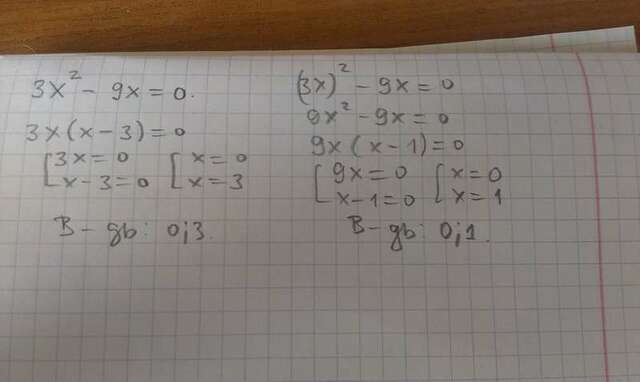 3x² - 9x = 0.
3x(x - 3) = 0
[3x = 0 [x = 0
[x - 3 = 0 [x = 3
В - дь: 0;3.
(3x)² - 9x = 0
9x² - 9x = 0
9x(x - 1) = 0
[9x = 0 [x = 0
[x - 1 = 0 [x = 1
В - дь: 0;1.